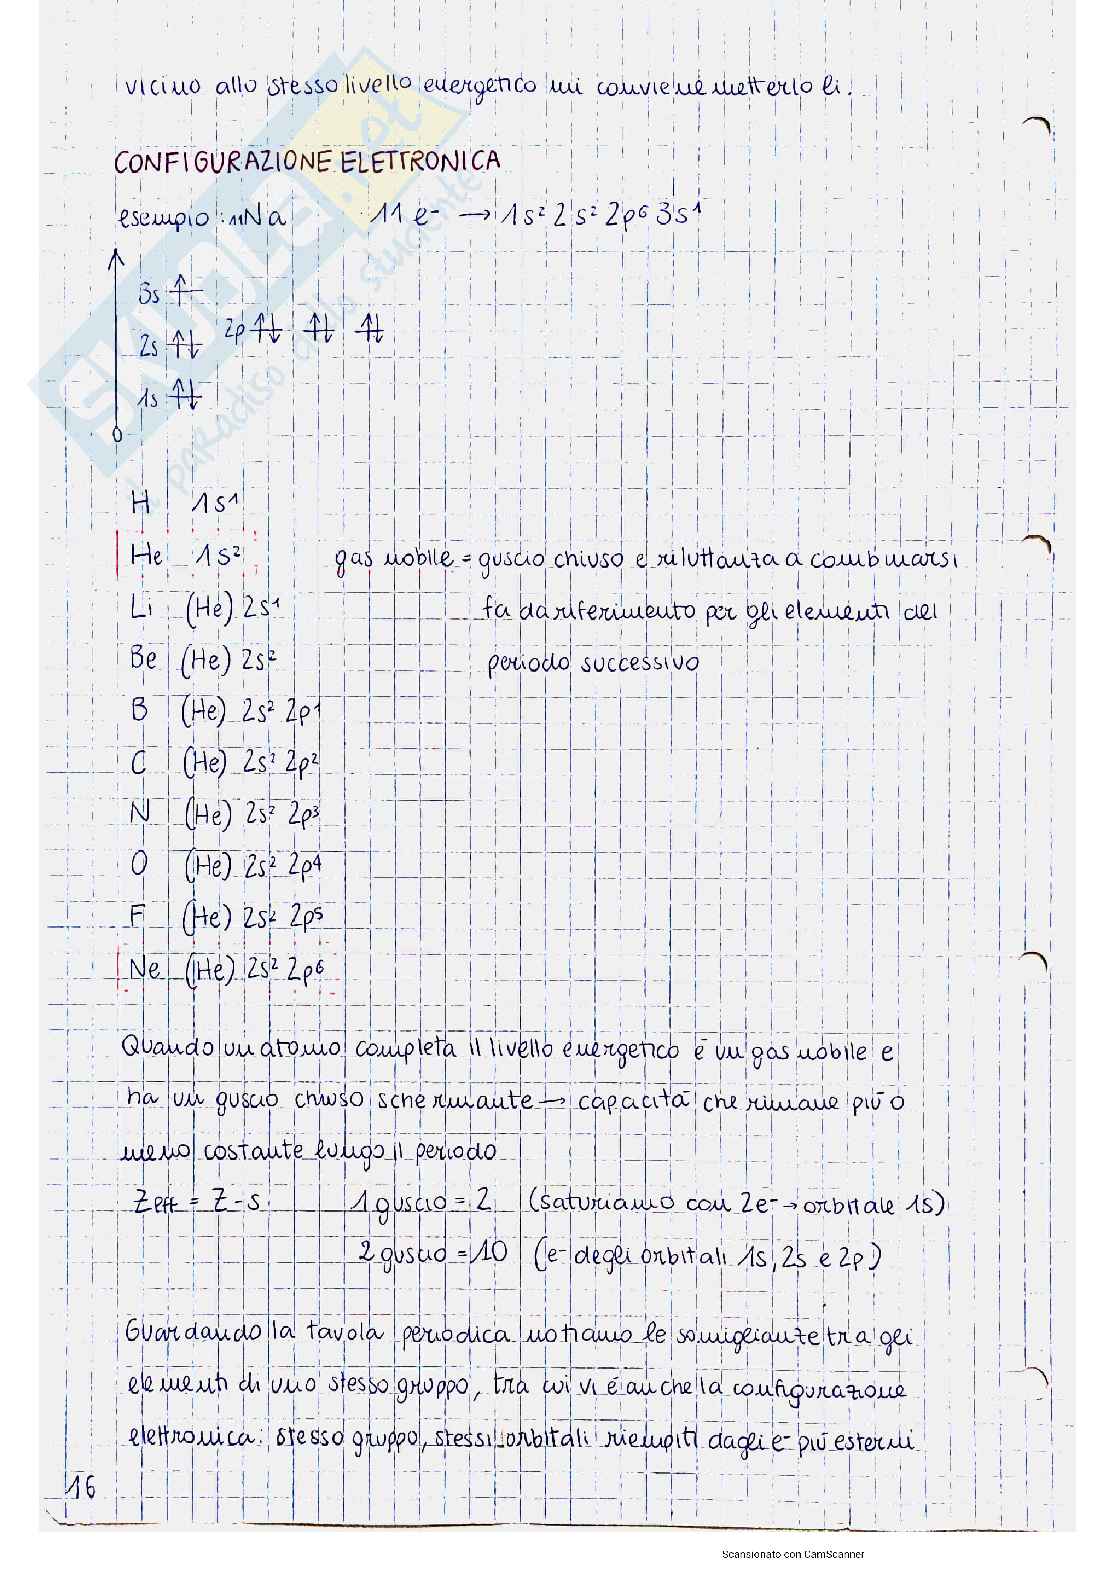 vicino allo stesso livello energetico mi conviene metterlo lì.
CONFIGURAZIONE ELETTRONICA
esempio: ₁₁Na 11 e⁻ → 1s² 2s² 2p⁶ 3s¹
3s ↑
2p ↑↓ ↑↓ ↑↓
2s ↑↓
1s ↑↓
0
H 1s¹
He 1s² gas nobile = guscio chiuso e riluttanza a combinarsi
Li (He) 2s¹ fa da riferimento per gli elementi del
Be (He) 2s² periodo successivo
B (He) 2s² 2p¹
C (He) 2s² 2p²
N (He) 2s² 2p³
O (He) 2s² 2p⁴
F (He) 2s² 2p⁵
Ne (He) 2s² 2p⁶
Quando un atomo completa il livello energetico è un gas nobile e
ha un guscio chiuso schermante → capacità che rimane più o
meno costante lungo il periodo
Zeff = Z - s 1 guscio = 2 (saturiamo con 2e⁻ → orbitale 1s)
2 guscio = 10 (e⁻ degli orbitali 1s, 2s e 2p)
Guardando la tavola periodica notiamo le somiglianze tra gli
elementi di uno stesso gruppo, tra cui vi è anche la configurazione
elettronica: stesso gruppo, stessi orbitali riempiti dagli e⁻ più esterni
16
SKUOLA.net
il paradiso dello studente
Scansionato con CamScanner